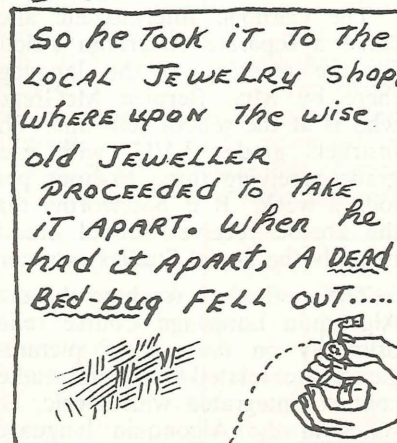 So he Took iT To The
LOCAL JEWELRy Shop
where upon The wise
old JEWELLER
PROCEEDED To TAKE
iT APART. When he
had it APART, A DEAD
BED-bug FELL OUT.....